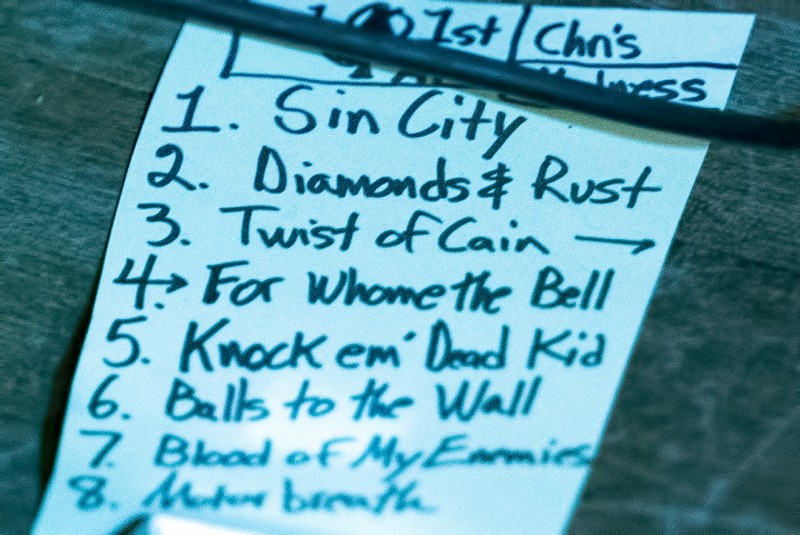 1st Chri's
1. Sin City
2. Diamonds & Rust
3. Twist of Cain →
4.→ For Whome the Bell
5. Knock em' Dead Kid
6. Balls to the Wall
7. Blood of My Enemies
8. Motorbreath